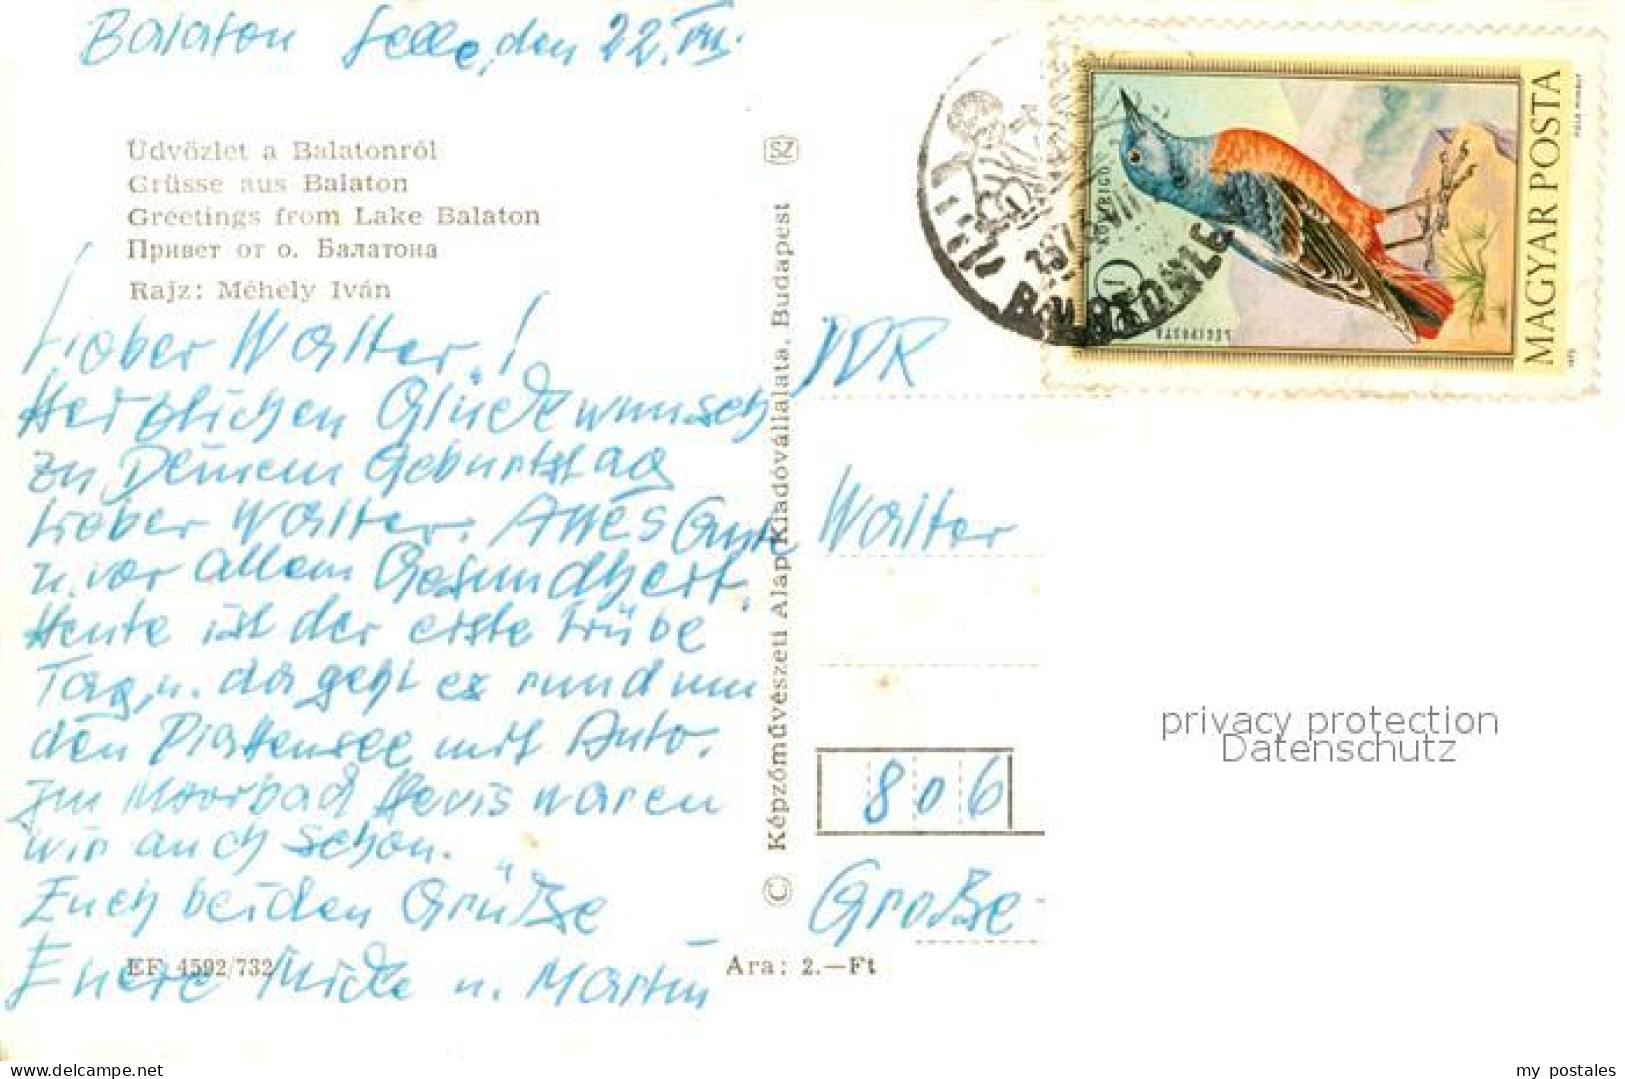 Balaton lelle, den 22. VIII.
Üdvözlet a Balatonról
Grüsse aus Balaton
Greetings from Lake Balaton
Привет от о. Балатона
Rajz: Méhely Iván
Lieber Walter!
Herzlichen Glückwunsch
zu Deinem Geburtstag
lieber Walter. Alles Gute
u. vor allem Gesundheit.
Heute ist der erste trübe
Tag, u. da geht es rund um
den Plattensee mit Auto.
Im Moorbad Hevis waren
wir auch schon.
Euch beiden Grüße
Eure u. Martin
EF 4592/732
Ara: 2.—Ft
© Képzőművészeti Alap Kiadóvállalata, Budapest
SZ
DDR
Walter
806
Große-
MAGYAR POSTA
KÖVIRIGÓ
LÉGIPOSTA
1973
privacy protection
Datenschutz
www.delcampe.net
my_postales